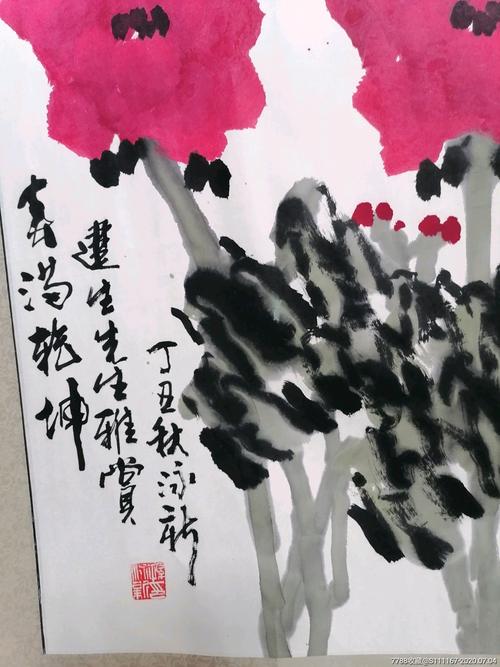 满乾坤
建生先生雅赏
丁丑秋泳新
7788收藏@S111167-2020.07.04